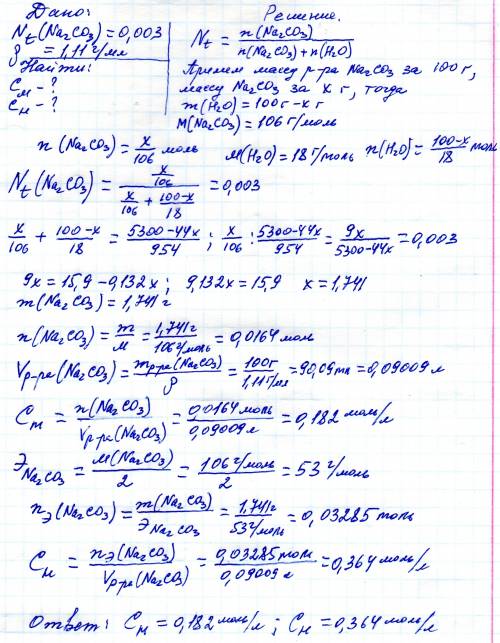 Дано:
N_t(Na₂CO₃)=0,003
ρ = 1,11 г/мл
Найти:
C_м - ?
C_н - ?
Решение.
N_t = n(Na₂CO₃) / (n(Na₂CO₃)+n(H₂O))
Примем массу р-ра Na₂CO₃ за 100 г,
массу Na₂CO₃ за x г, тогда
m(H₂O)=100г-x г
M(Na₂CO₃)=106г/моль
n(Na₂CO₃)=x/106 моль M(H₂O)=18 г/моль n(H₂O)=(100-x)/18 моль
N_t(Na₂CO₃)= (x/106) / (x/106 + (100-x)/18) =0,003
x/106 + (100-x)/18 = (5300-44x)/954 ; x/106 : (5300-44x)/954 = 9x/(5300-44x) =0,003
9x=15,9-0,132x; 9,132x=15,9 x=1,741
m(Na₂CO₃)=1,741г
n(Na₂CO₃)= m/M = 1,741г/106г/моль =0,0164 моль
Vр-ра(Na₂CO₃)= mр-ра(Na₂CO₃)/ρ = 100г/1,11г/мл =90,09мл=0,09009л
C_m = n(Na₂CO₃)/Vр-ра(Na₂CO₃) = 0,0164 моль/0,09009 л =0,182 моль/л
Э_Na₂CO₃ = M(Na₂CO₃)/2 = 106 г/моль/2 =53 г/моль
n_э(Na₂CO₃)= m(Na₂CO₃)/Э_Na₂CO₃ = 1,741г/53г/моль =0,03285 моль
C_н = n_э(Na₂CO₃)/Vр-ра(Na₂CO₃) = 0,03285 моль/0,09009л =0,364 моль/л
Ответ: C_м=0,182 моль/л; C_н=0,364 моль/л